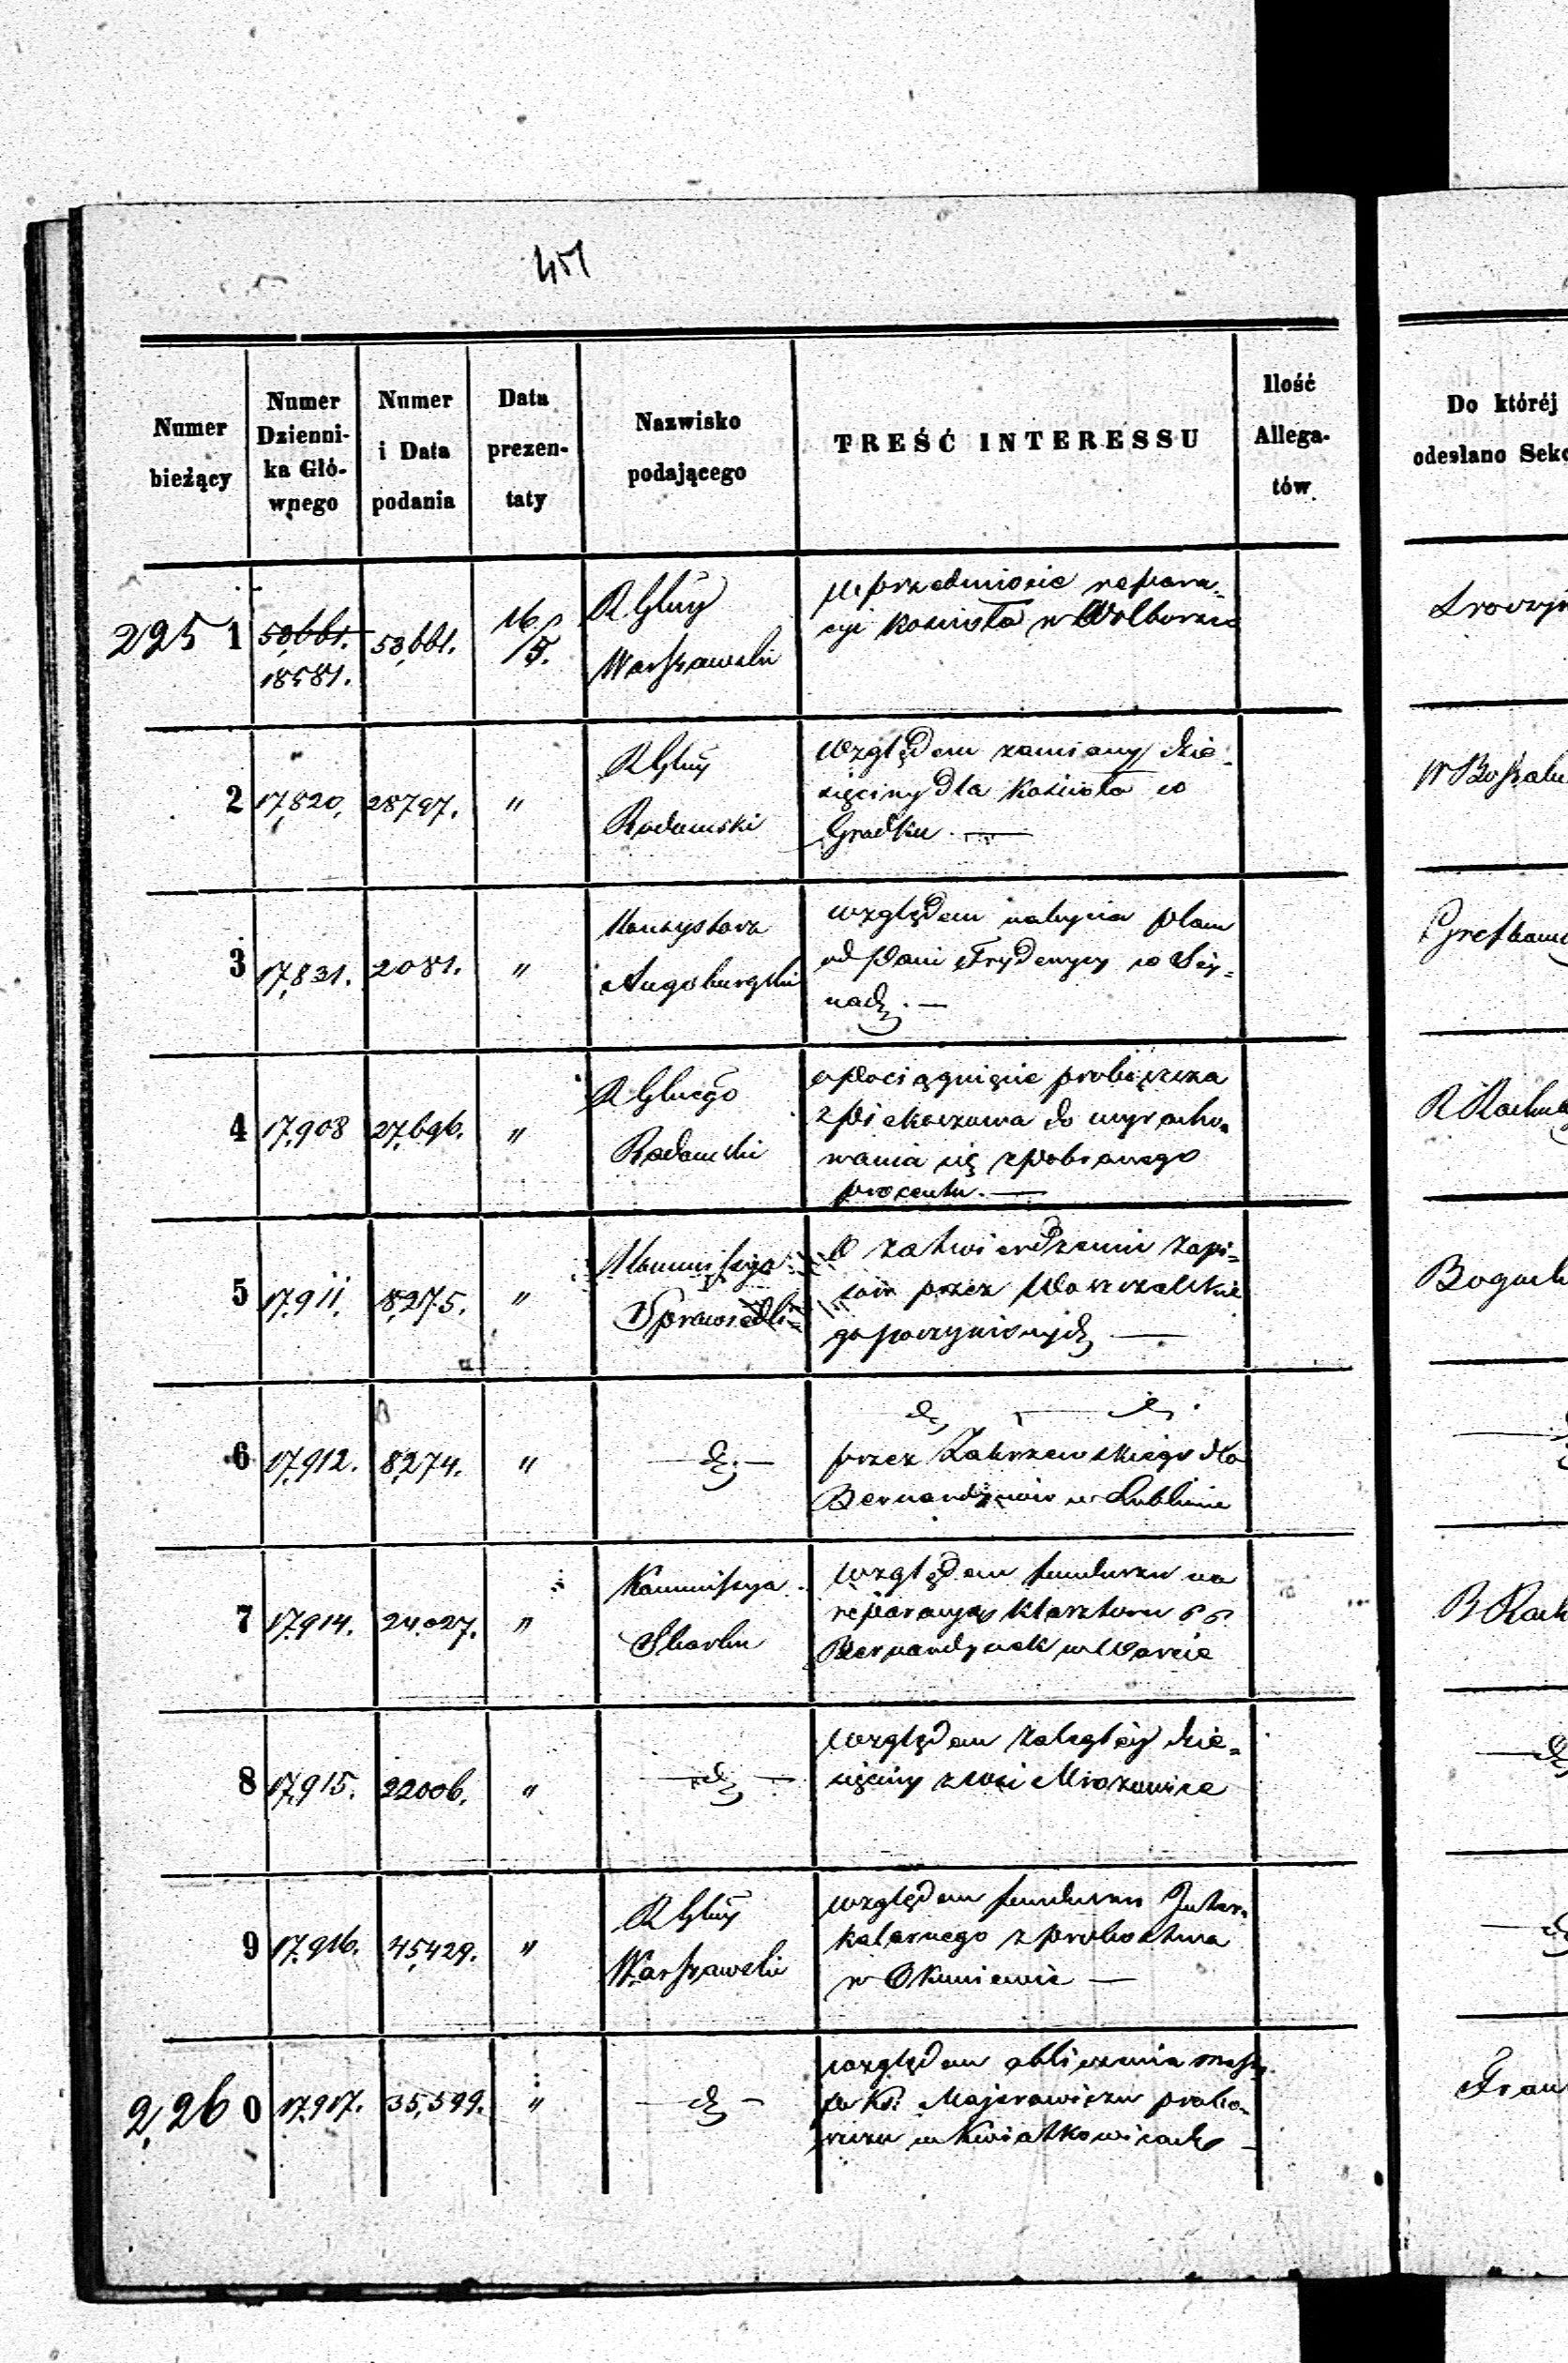 451
Numer bieżący
Numer Dzienni-ka Głó-wnego
Numer i Data podania
Data prezen-taty
Nazwisko podającego
TREŚĆ INTERESSU
Ilość Allega-tów
Do któréj
odesłano Sekc
2251
53,661.
18581.
53,661.
16/5.
R Głny
Warszawski
w przedmiocie repara-
cyi kościoła w Wolborzu
2
17,820.
28797.
"
R Głny
Radomski
Względem zamiany dzie-
sięciny dla Kościoła w
Gradku. —
3
17,831.
2081.
"
Konsystorz
Augsburgski
względem nabycia placu
od Pani Frydrycy w Sey-
nach. —
4
17,908
27,696.
"
R Głnego
Radomski
o pociągnięcie proboszcza
z Piekoszowa do wyracho-
wania się z pobranego
procentu. —
5
17,911.
8,275.
"
Kommissya
Sprawiedli-
O zatwierdzenie zapi-
sów przez
go poczynionych —
6
17,912.
8,274.
"
— dt. —
dt — dt.
przez Zakrzewskiego dla
Bernardynów w Lublinie
7
17,914.
24,027.
"
Kommissya
Skarbu
względem funduszu na
reparacyą Klasztoru PP
Bernardynek w Warcie
8
17,915.
22006.
"
— dt —
względem zaległéj dzie-
sięciny z wsi Mrozowice
9
17,916.
45,429.
"
R Głny
Warszawski
względem funduszu Inter-
kalarnego z probostwa
w Okuniewie —
2,260
17,917.
35,599.
"
— dt —
względem obliczenia massy
po Ks. Majerowiczu probo-
szczu w Kwiatkowicach —